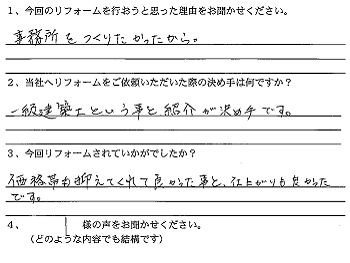 1、今回のリフォームを行おうと思った理由をお聞かせください。
事務所をつくりたかったから。
2、当社へリフォームをご依頼いただいた際の決め手は何ですか？
一級建築士という事と紹介が決め手です。
3、今回リフォームされていかがでしたか？
価格帯も抑えてくれて良かった事と、仕上がりも良かった
です。
4、　　　様の声をお聞かせください。
（どのような内容でも結構です）